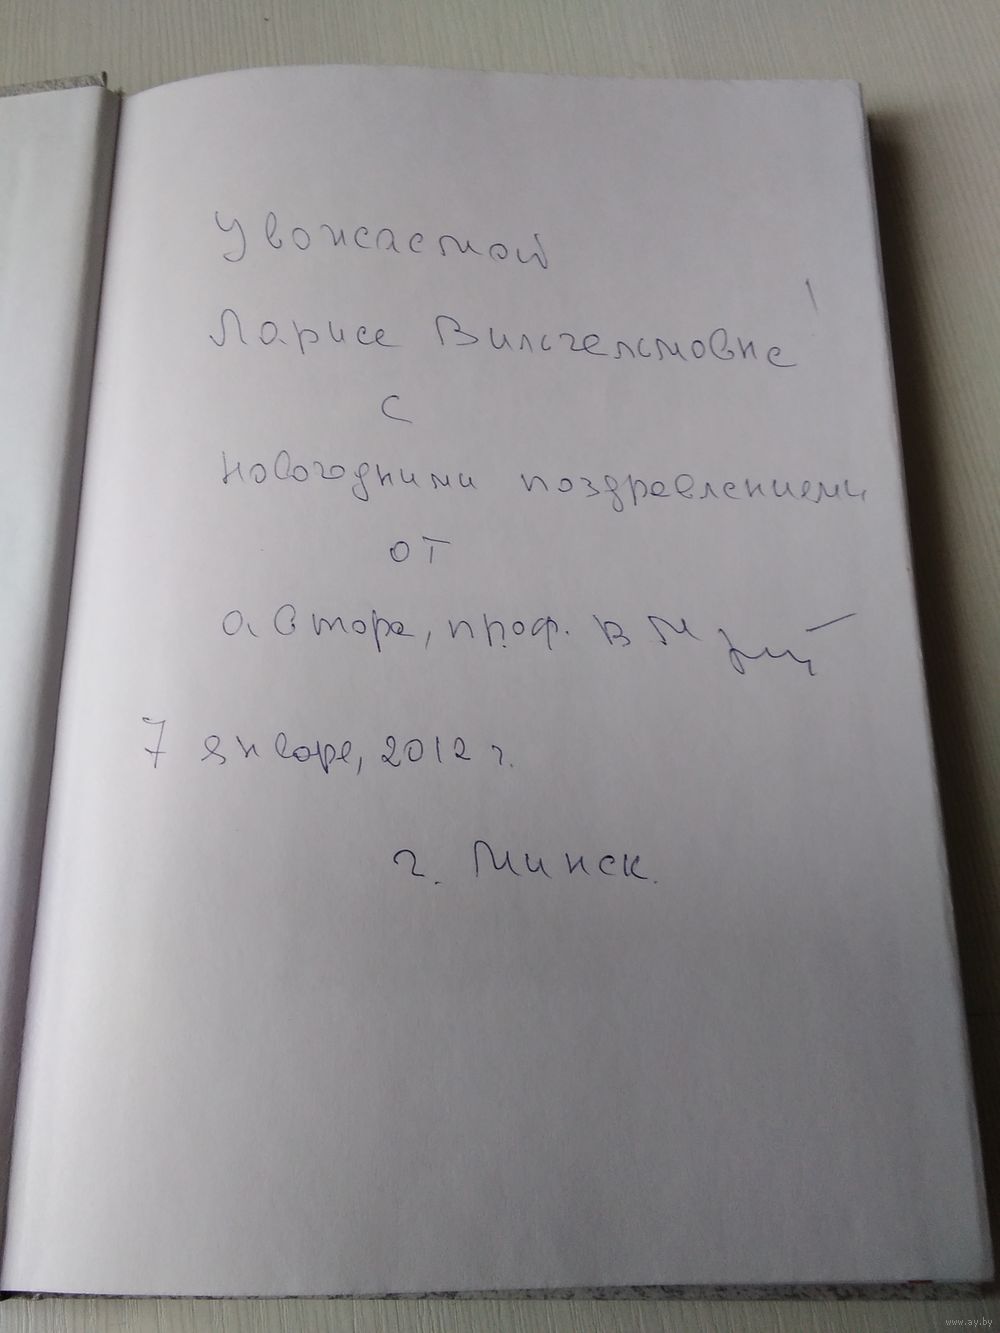 Уважаемой
Ларисе Вильгельмовне!
с
новогодними поздравлениями
от
автора, проф. В М
7 января, 2012 г.
г. Минск.
www.ay.by